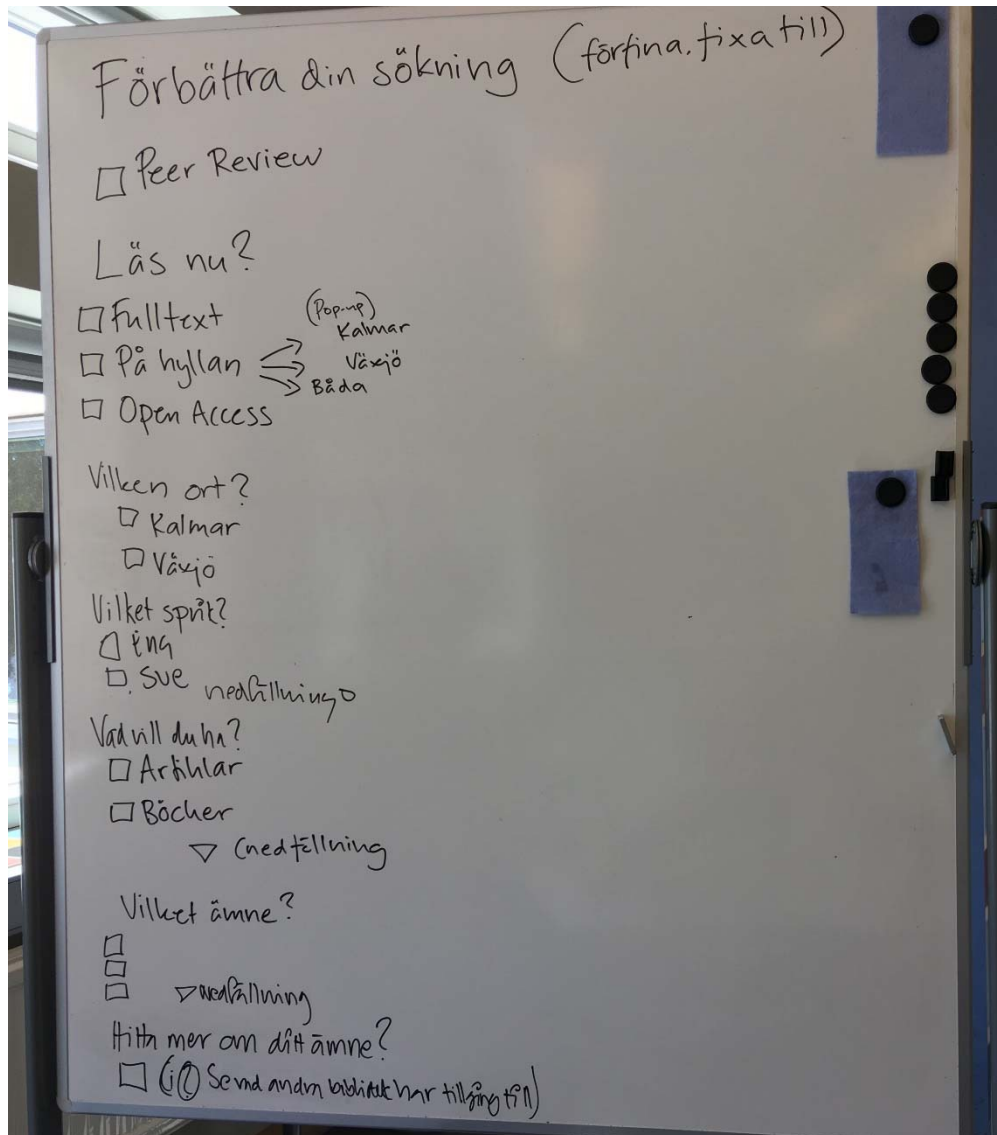 Förbättra din sökning (förfina, fixa till)
Peer Review
Läs nu?
Fulltext (Pop-up)
Kalmar
På hyllan Växjö
Båda
Open Access
Vilken ort?
Kalmar
Växjö
Vilket språk?
Eng
Sve nedfällning
Vad vill du ha?
Artiklar
Böcker
(nedfällning
Vilket ämne?
nedfällning
Hitta mer om ditt ämne?
(i Se vad andra bibliotek har tillgång till)